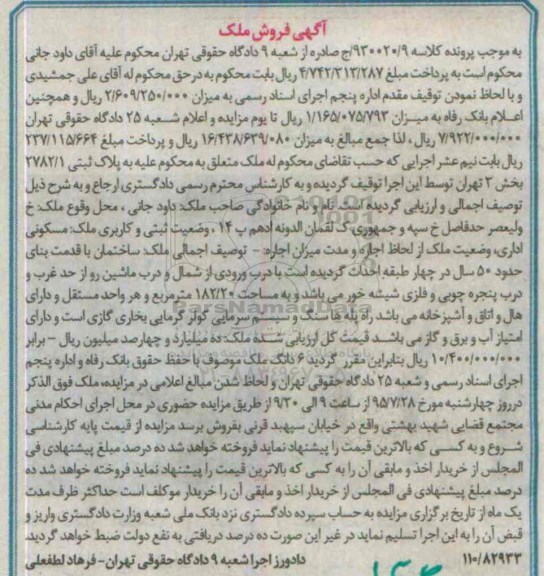 آگهی فروش ملک
به موجب پرونده کلاسه ۹۳۰۰۲۰/۹/ج صادره از شعبه ۹ دادگاه حقوقی تهران محکوم علیه آقای داود جانی
محکوم است به پرداخت مبلغ ۴/۷۴۲/۳۱۳/۲۸۷ ریال بابت محکوم به در حق محکوم له آقای علی جمشیدی
و با لحاظ نمودن توقیف مقدم اداره پنجم اجرای اسناد رسمی به میزان ۲/۶۰۹/۲۵۰/۰۰۰ ریال و همچنین
اعلام بانک رفاه به میزان ۱/۱۶۵/۰۷۵/۷۹۳ ریال تا یوم مزایده و اعلام شعبه ۲۵ دادگاه حقوقی تهران
۷/۹۲۲/۰۰۰/۰۰۰ ریال، لذا جمع مبالغ به میزان ۱۶/۴۳۸/۶۳۹/۰۸۰ ریال و پرداخت مبلغ ۲۳۷/۱۱۵/۶۶۴
ریال بابت نیم عشر اجرایی که حسب تقاضای محکوم له ملک متعلق به محکوم علیه به پلاک ثبتی ۲۷۸۲/۱
بخش ۳ تهران توسط این اجرا توقیف گردیده و به کارشناس محترم رسمی دادگستری ارجاع و به شرح ذیل
توصیف اجمالی و ارزیابی گردیده است. نام و نام خانوادگی صاحب ملک: داود جانی ، محل وقوع ملک: خ
ولیعصر حدفاصل خ سپه و جمهوری ک لقمان الدوله ادهم پ ۱۴ ، وضعیت ثبتی و کاربری ملک: مسکونی
اداری، وضعیت ملک از لحاظ اجاره و مدت میزان اجاره: - توصیف اجمالی ملک: ساختمان با قدمت بنای
حدود ۵۰ سال در چهار طبقه احداث گردیده است با درب ورودی از شمال و درب ماشین رو از حد غرب و
درب پنجره چوبی و فلزی شیشه خور می باشد و به مساحت ۱۸۲/۲۰ مترمربع و هر واحد مستقل و دارای
هال و اتاق و آشپزخانه می باشد راه پله ها سنگ و سیستم سرمایی کولر گرمایی بخاری گازی است و دارای
امتیاز آب و برق و گاز می باشد قیمت کل ارزیابی شده ملک: ده میلیارد و چهارصد میلیون ریال - برابر
۱۰/۴۰۰/۰۰۰/۰۰۰ ریال بنابراین مقرر گردید ۶ دانگ ملک موصوف با حفظ حقوق بانک رفاه و اداره پنجم
اجرای اسناد رسمی و شعبه ۲۵ دادگاه حقوقی تهران و لحاظ شدن مبالغ اعلامی در مزایده، ملک فوق الذکر
در روز چهارشنبه مورخ ۹۵/۷/۲۸ از ساعت ۹ الی ۹/۳۰ از طریق مزایده حضوری در محل اجرای احکام مدنی
مجتمع قضایی شهید بهشتی واقع در خیابان سپهبد قرنی بفروش برسد مزایده از قیمت پایه کارشناسی
شروع و به کسی که بالاترین قیمت را پیشنهاد نماید فروخته خواهد شد ده درصد مبلغ پیشنهادی فی
المجلس از خریدار اخذ و مابقی آن را به کسی که بالاترین قیمت را پیشنهاد نماید فروخته خواهد شد ده
درصد مبلغ پیشنهادی فی المجلس از خریدار اخذ و مابقی آن را خریدار موکلف است حداکثر ظرف مدت
یک ماه از تاریخ برگزاری مزایده به حساب سپرده دادگستری نزد بانک ملی شعبه وزارت دادگستری واریز و
قبض آن را به این اجرا تسلیم نماید در غیر این صورت ده درصد دریافتی به نفع دولت ضبط خواهد گردید.
۱۱۰/۸۲۹۳۳ دادورز اجرا شعبه ۹ دادگاه حقوقی تهران- فرهاد لطفعلی